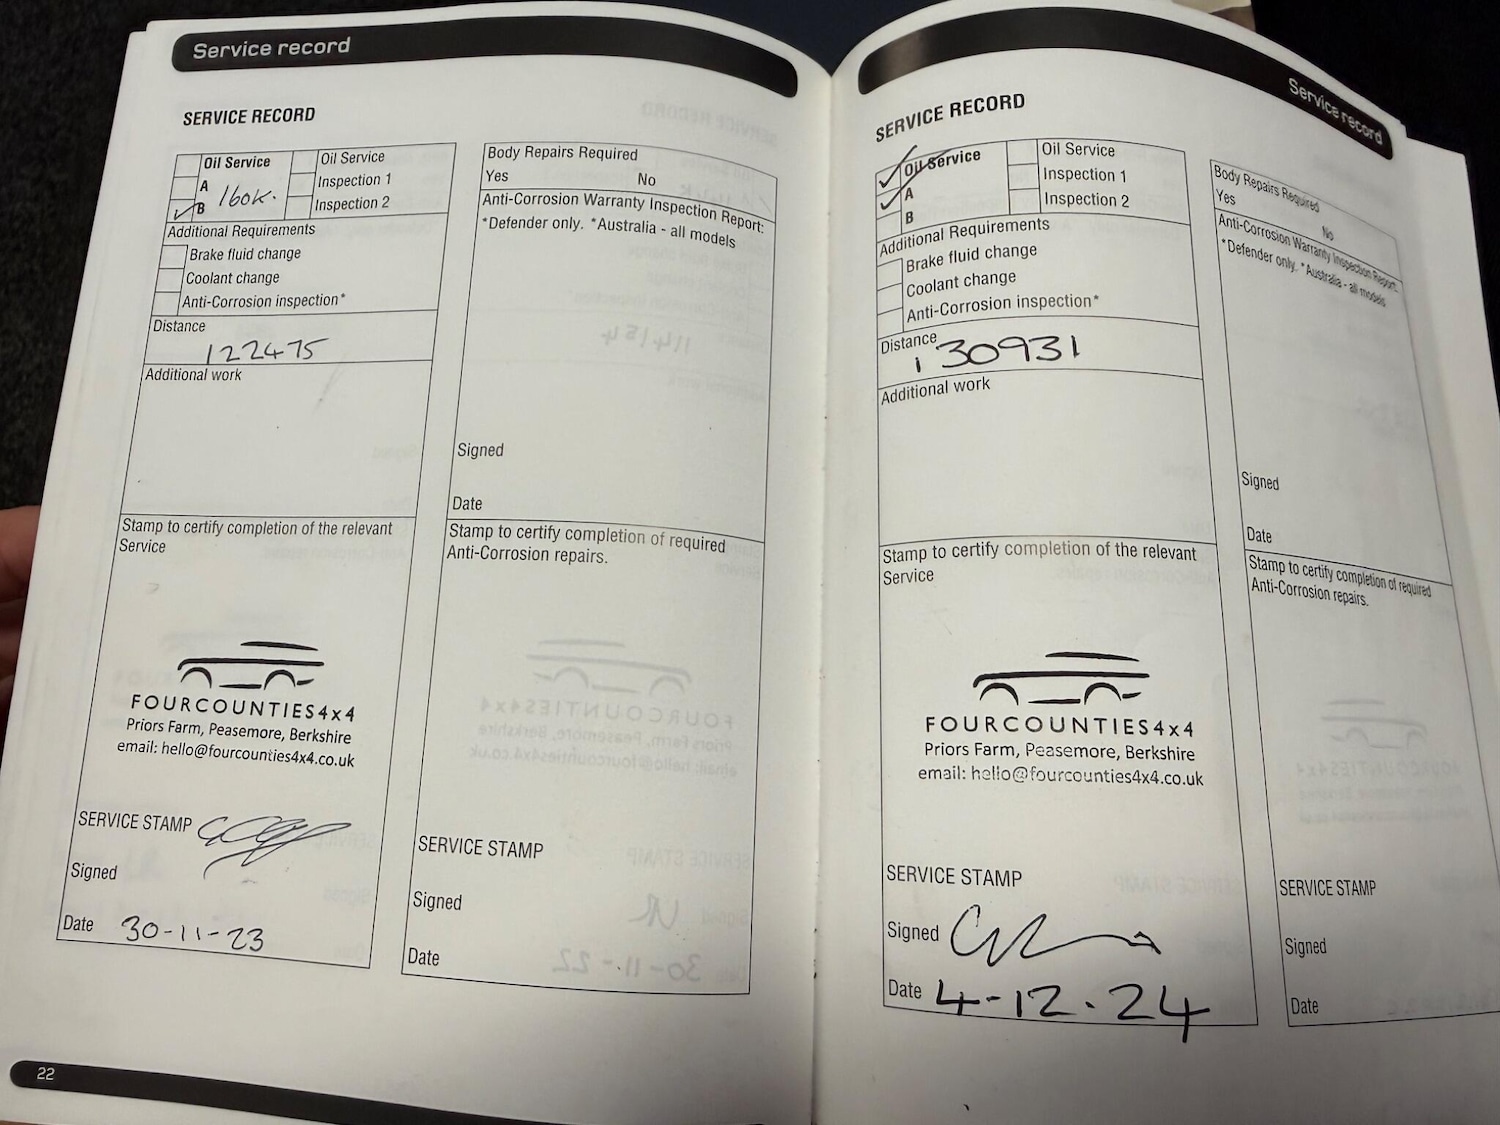 Service record
SERVICE RECORD
Oil Service
A
160K.
B
Oil Service
Inspection 1
Inspection 2
Additional Requirements
Brake fluid change
Coolant change
Anti-Corrosion inspection*
Distance
122475
Additional work
Stamp to certify completion of the relevant
Service
FOURCOUNTIES4x4
Priors Farm, Peasemore, Berkshire
email: hello@fourcounties4x4.co.uk
SERVICE STAMP
Signed
Date 30-11-23
Body Repairs Required
Yes No
Anti-Corrosion Warranty Inspection Report:
*Defender only. *Australia - all models
Signed
Date
Stamp to certify completion of required
Anti-Corrosion repairs.
SERVICE STAMP
Signed
Date
22
Service record
SERVICE RECORD
Oil Service
A
B
Oil Service
Inspection 1
Inspection 2
Additional Requirements
Brake fluid change
Coolant change
Anti-Corrosion inspection*
Distance
130931
Additional work
Stamp to certify completion of the relevant
Service
FOURCOUNTIES4x4
Priors Farm, Peasemore, Berkshire
email: hello@fourcounties4x4.co.uk
SERVICE STAMP
Signed
Date 4-12.24
Body Repairs Required
Yes No
Anti-Corrosion Warranty Inspection Report:
*Defender only. *Australia - all models
Signed
Date
Stamp to certify completion of required
Anti-Corrosion repairs.
SERVICE STAMP
Signed
Date